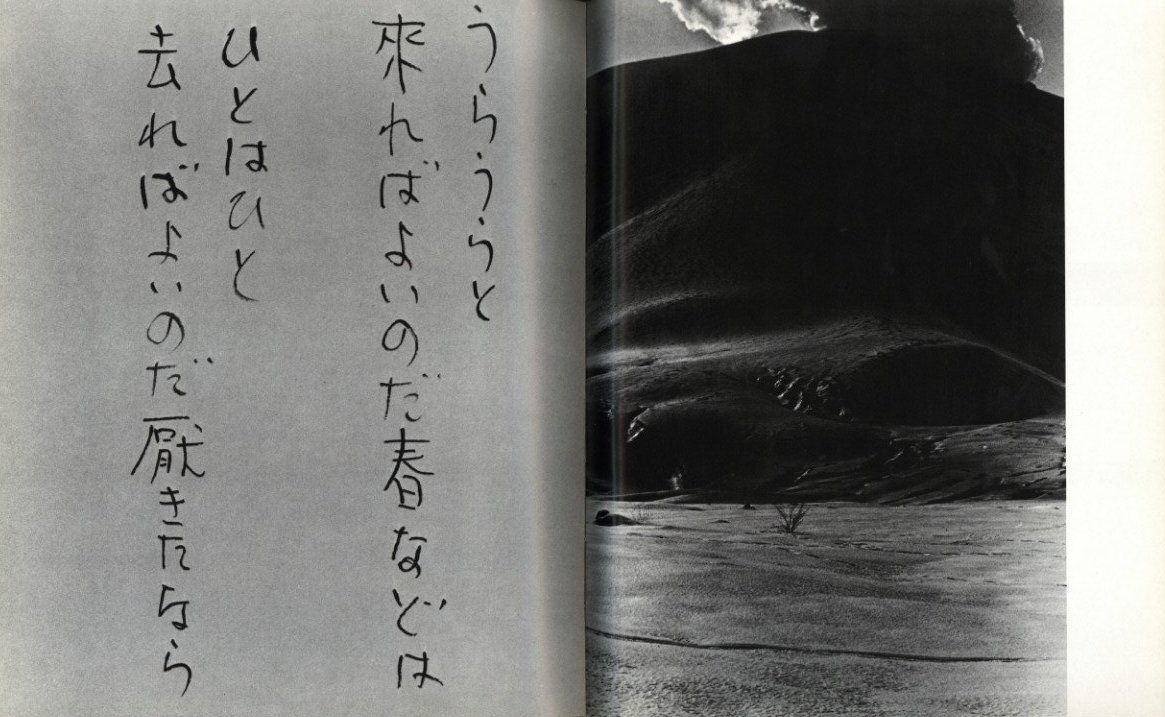 うらうらと
來ればよいのだ春などは
ひとはひと
去ればよいのだ厭きたなら